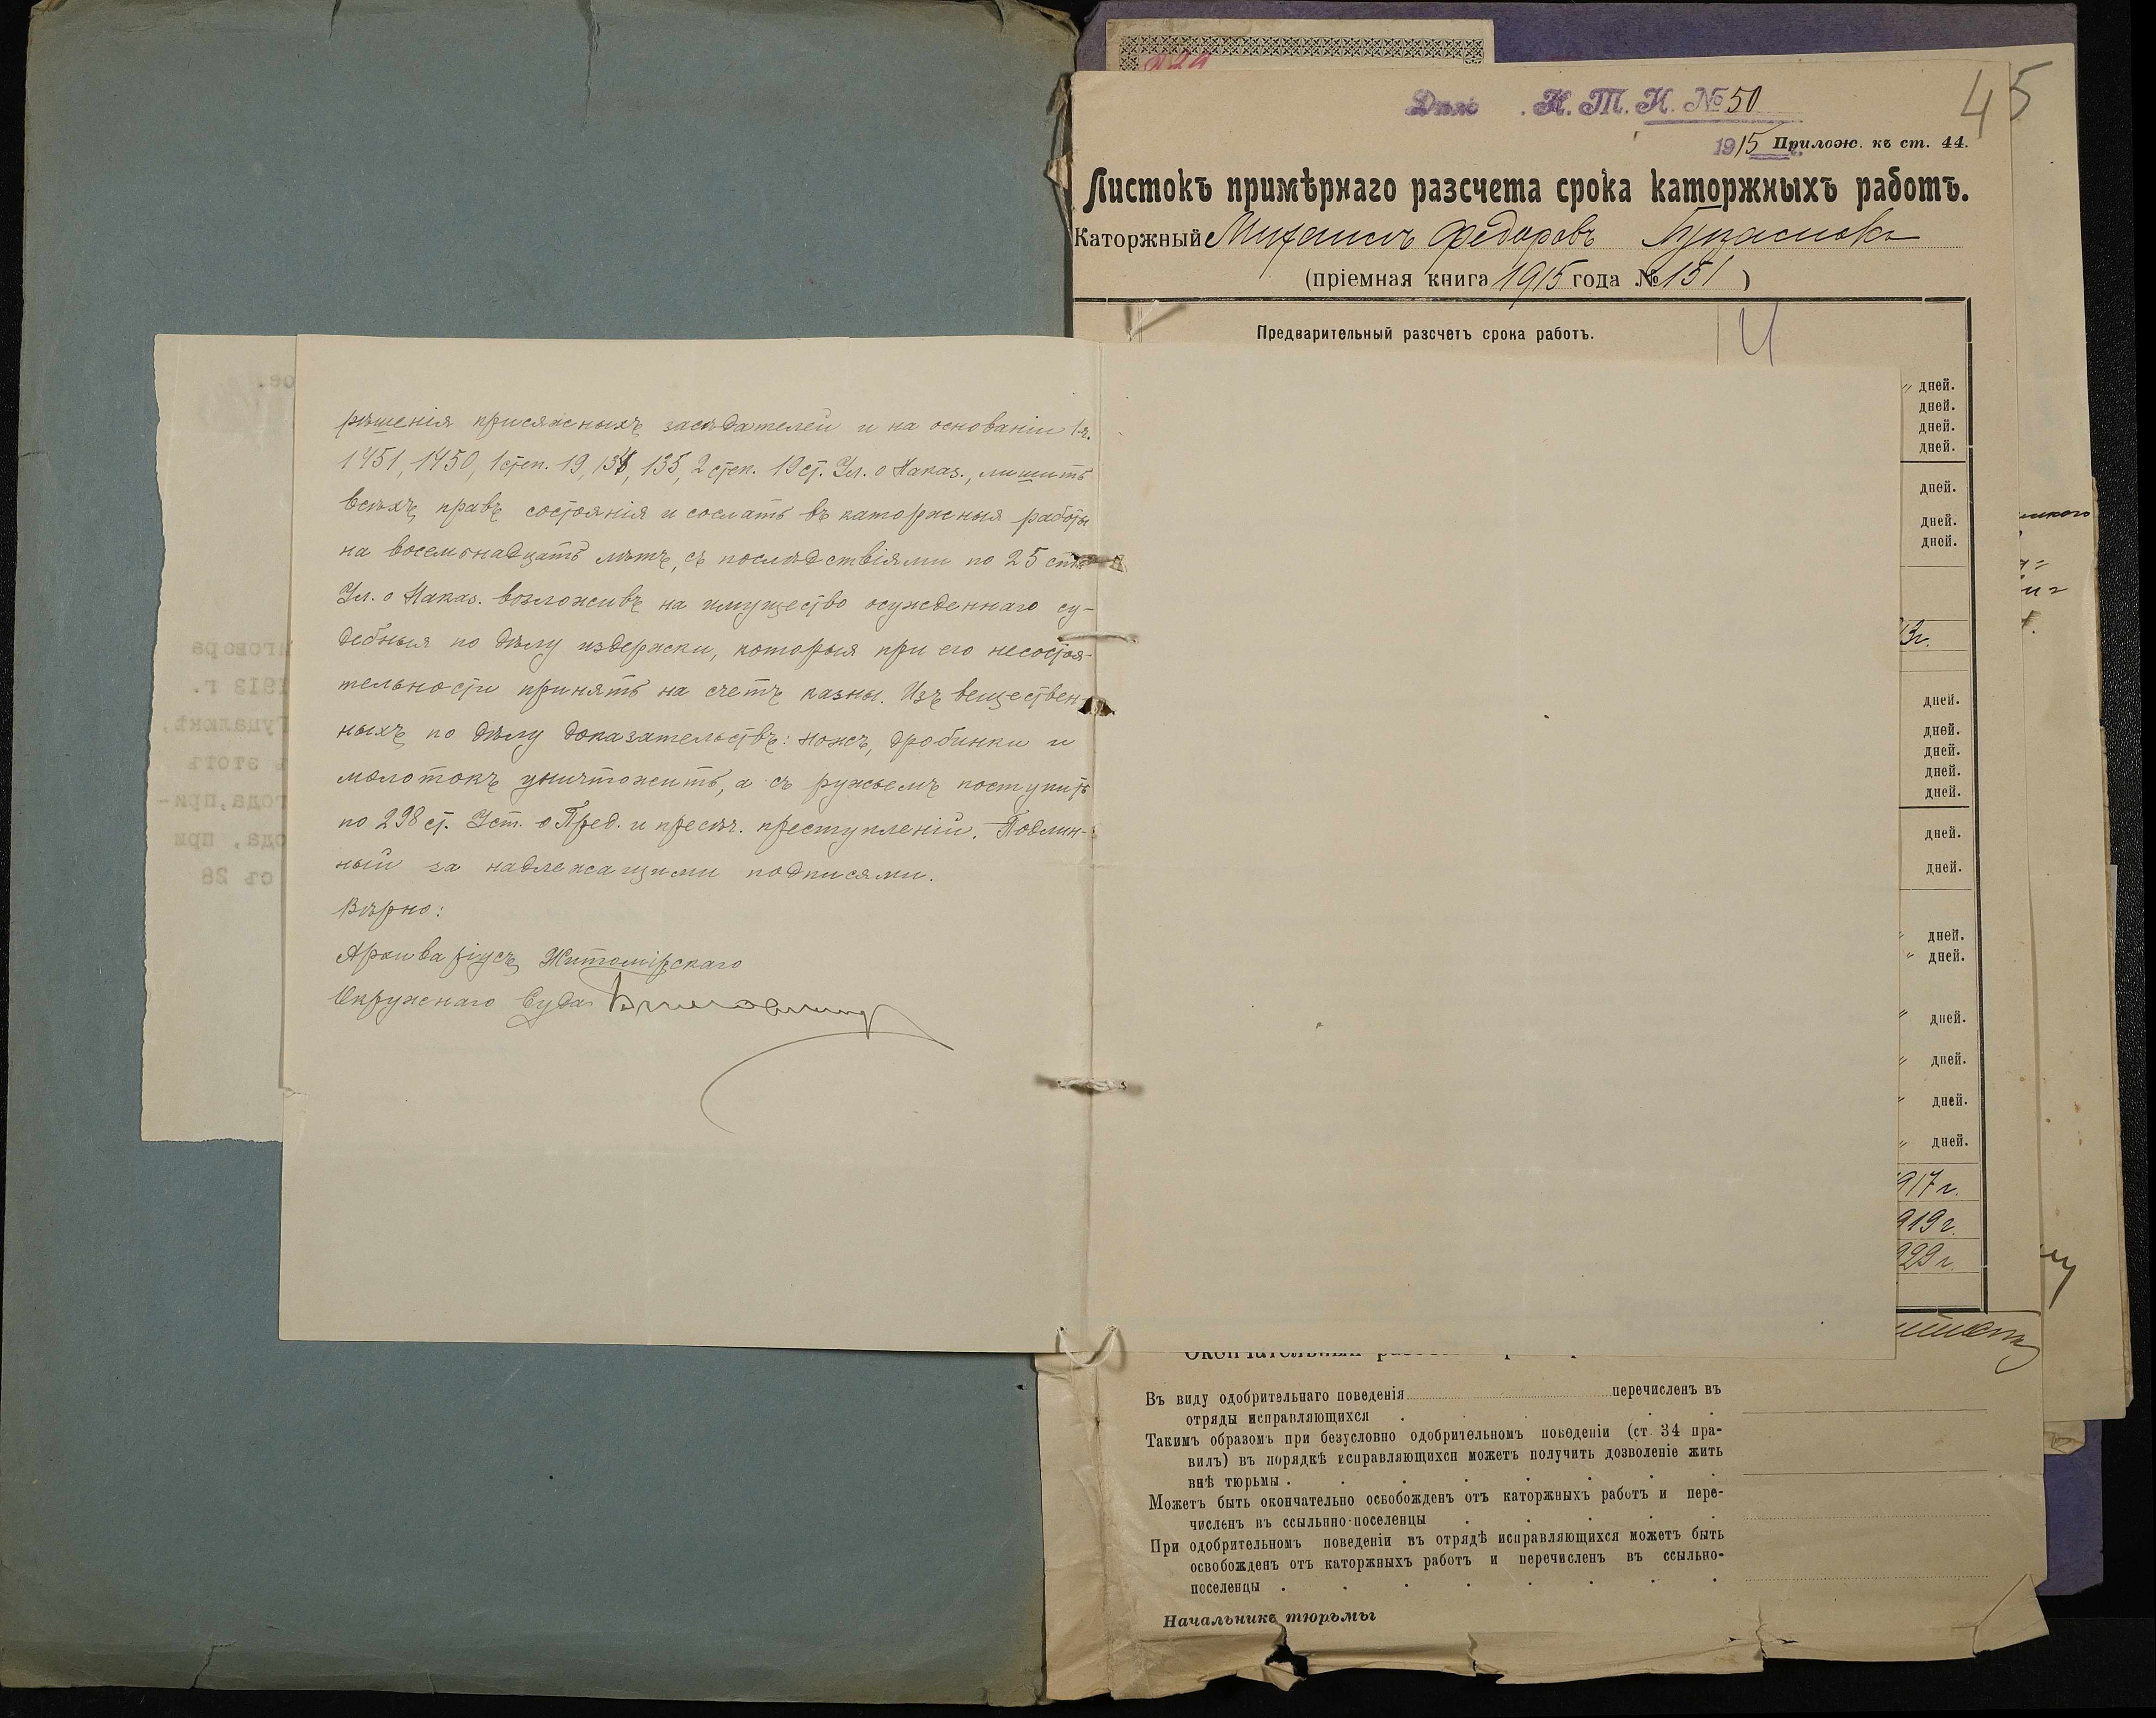 рѣшенія присяжныхъ засѣдателей и на основаніи 1 ч.
1451, 1450, 1 степ. 19, 134, 135, 2 степ. 19 ст. Ул. о Наказ., лишить
всѣхъ правъ состоянія и сослать въ каторжныя работы
на восемьнадцать лѣтъ, съ послѣдствіями по 25 ст.
Ул. о Наказ. возложивъ на имущество осужденнаго су-
дебныя по дѣлу издержки, которыя при его несостоя-
тельности принять на счетъ казны. Изъ веществен-
ныхъ по дѣлу доказательствъ: ножъ, дробинки и
молотокъ уничтожить, а съ ружьемъ поступить
по 298 ст. Уст. о Пред. и пресѣч. преступленій. Подлин-
ный за надлежащими подписями.
Вѣрно:
Архиваріусъ Житомірскаго
Окружнаго Суда
Дѣло . К. Т. Н. № 50
45
1915 Прилож. къ ст. 44.
Листокъ примѣрнаго разсчета срока каторжныхъ работъ.
Каторжный Михаилъ Федоровъ
(пріемная книга 1915 года № 151 )
Предварительный разсчетъ срока работъ.
дней.
дней.
дней.
дней.
дней.
дней.
дней.
13г.
дней.
дней.
дней.
дней.
дней.
дней.
дней.
дней.
дней.
дней.
дней.
дней.
дней.
917 г.
919 г.
929 г.
Въ виду одобрительнаго поведенія перечисленъ въ
отряды исправляющихся
Такимъ образомъ при безусловно одобрительномъ поведеніи (ст. 34 пра-
вилъ) въ порядкѣ исправляющихся можетъ получить дозволеніе жить
внѣ тюрьмы
Можетъ быть окончательно освобожденъ отъ каторжныхъ работъ и пере-
численъ въ ссыльно-поселенцы
При одобрительномъ поведеніи въ отрядѣ исправляющихся можетъ быть
освобожденъ отъ каторжныхъ работъ и перечисленъ въ ссыльно-
поселенцы
Начальникъ тюрьмы